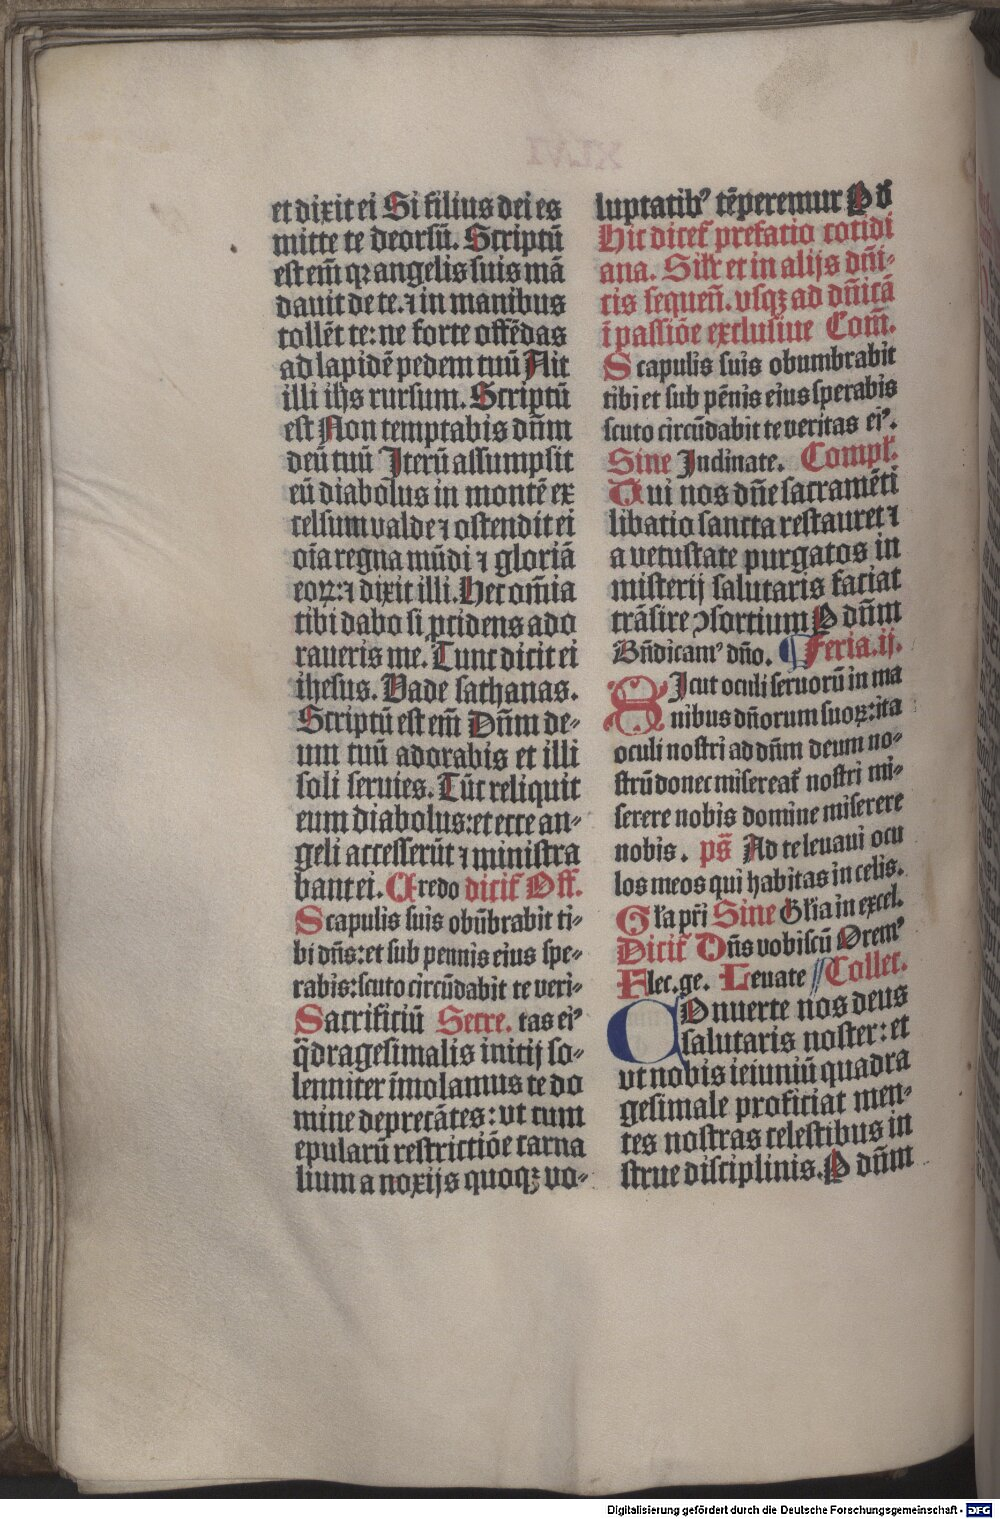 et dixit ei Si filius dei es
mitte te deorsū. Scriptū
est em̄ qꝛ angelis suis mā
dauit de te. ⁊ in manibus
tollēt te: ne forte offēdas
ad lapidē pedem tuū Ait
illi ihs rursum. Scriptū
est Non temptabis dn̄m
deū tuū Iterū assumpsit
eū diabolus in montē ex
celsum valde ⁊ ostendit ei
oīa regna mūdi ⁊ gloriā
eoꝝ: ⁊ dixit illi. Hec om̄ia
tibi dabo si ꝓcidens ado
raueris me. Tunc dicit ei
ihesus. Vade sathanas.
Scriptū est em̄ Dn̄m de-
um tuū adorabis et illi
soli seruies. Tūc reliquit
eum diabolus: et ecce an-
geli accesserūt ⁊ ministra
bant ei. Credo dicit̄ Off.
Scapulis suis obūbrabit ti-
bi dn̄s: et sub pennis eius spe-
rabis: scuto circūdabit te veri-
Sacrificiū Secre. tas eiꝰ
q̄dragesimalis initij so-
lenniter īmolamus te do
mine deprecātes: vt cum
epularū restrictiōe carna
lium a noxijs quoqꝫ vo-
luptatibꝰ tēperemur P d̄
Hic dicet̄ prefatio cotidi
ana. Silr̄ et in alijs dn̄i-
cis sequen̄. vsqꝫ ad dn̄icā
ī passiōe exclusiue Com̄.
Scapulis suis obumbrabit
tibi et sub pēnis eius sperabis
scuto circūdabit te veritas eiꝰ.
Sine Inclinate. Compl̄.
Qui nos dn̄e sacramēti
libatio sancta restauret ⁊
a vetustate purgatos in
misterij salutaris faciat
trāsire ꝯsortium P dn̄m
Bn̄dicamꝰ dn̄o. Feria. ij.
SIcut oculi seruorū in ma
nibus dn̄orum suoꝝ: ita
oculi nostri ad dn̄m deum no-
strū donec misereat̄ nostri mi-
serere nobis domine miserere
nobis. ps̄ Ad te leuaui ocu
los meos qui habitas in celis.
Gl̄a pr̄i Sine Gl̄ia in excel.
Dicit̄ Dn̄s vobiscū Oremꝰ
Flec. ge. Leuate Collec.
COnuerte nos deus
salutaris noster: et
vt nobis ieiuniū quadra
gesimale proficiat men-
tes nostras celestibus in
strue disciplinis. P dn̄m
Digitalisierung gefördert durch die Deutsche Forschungsgemeinschaft - DFG